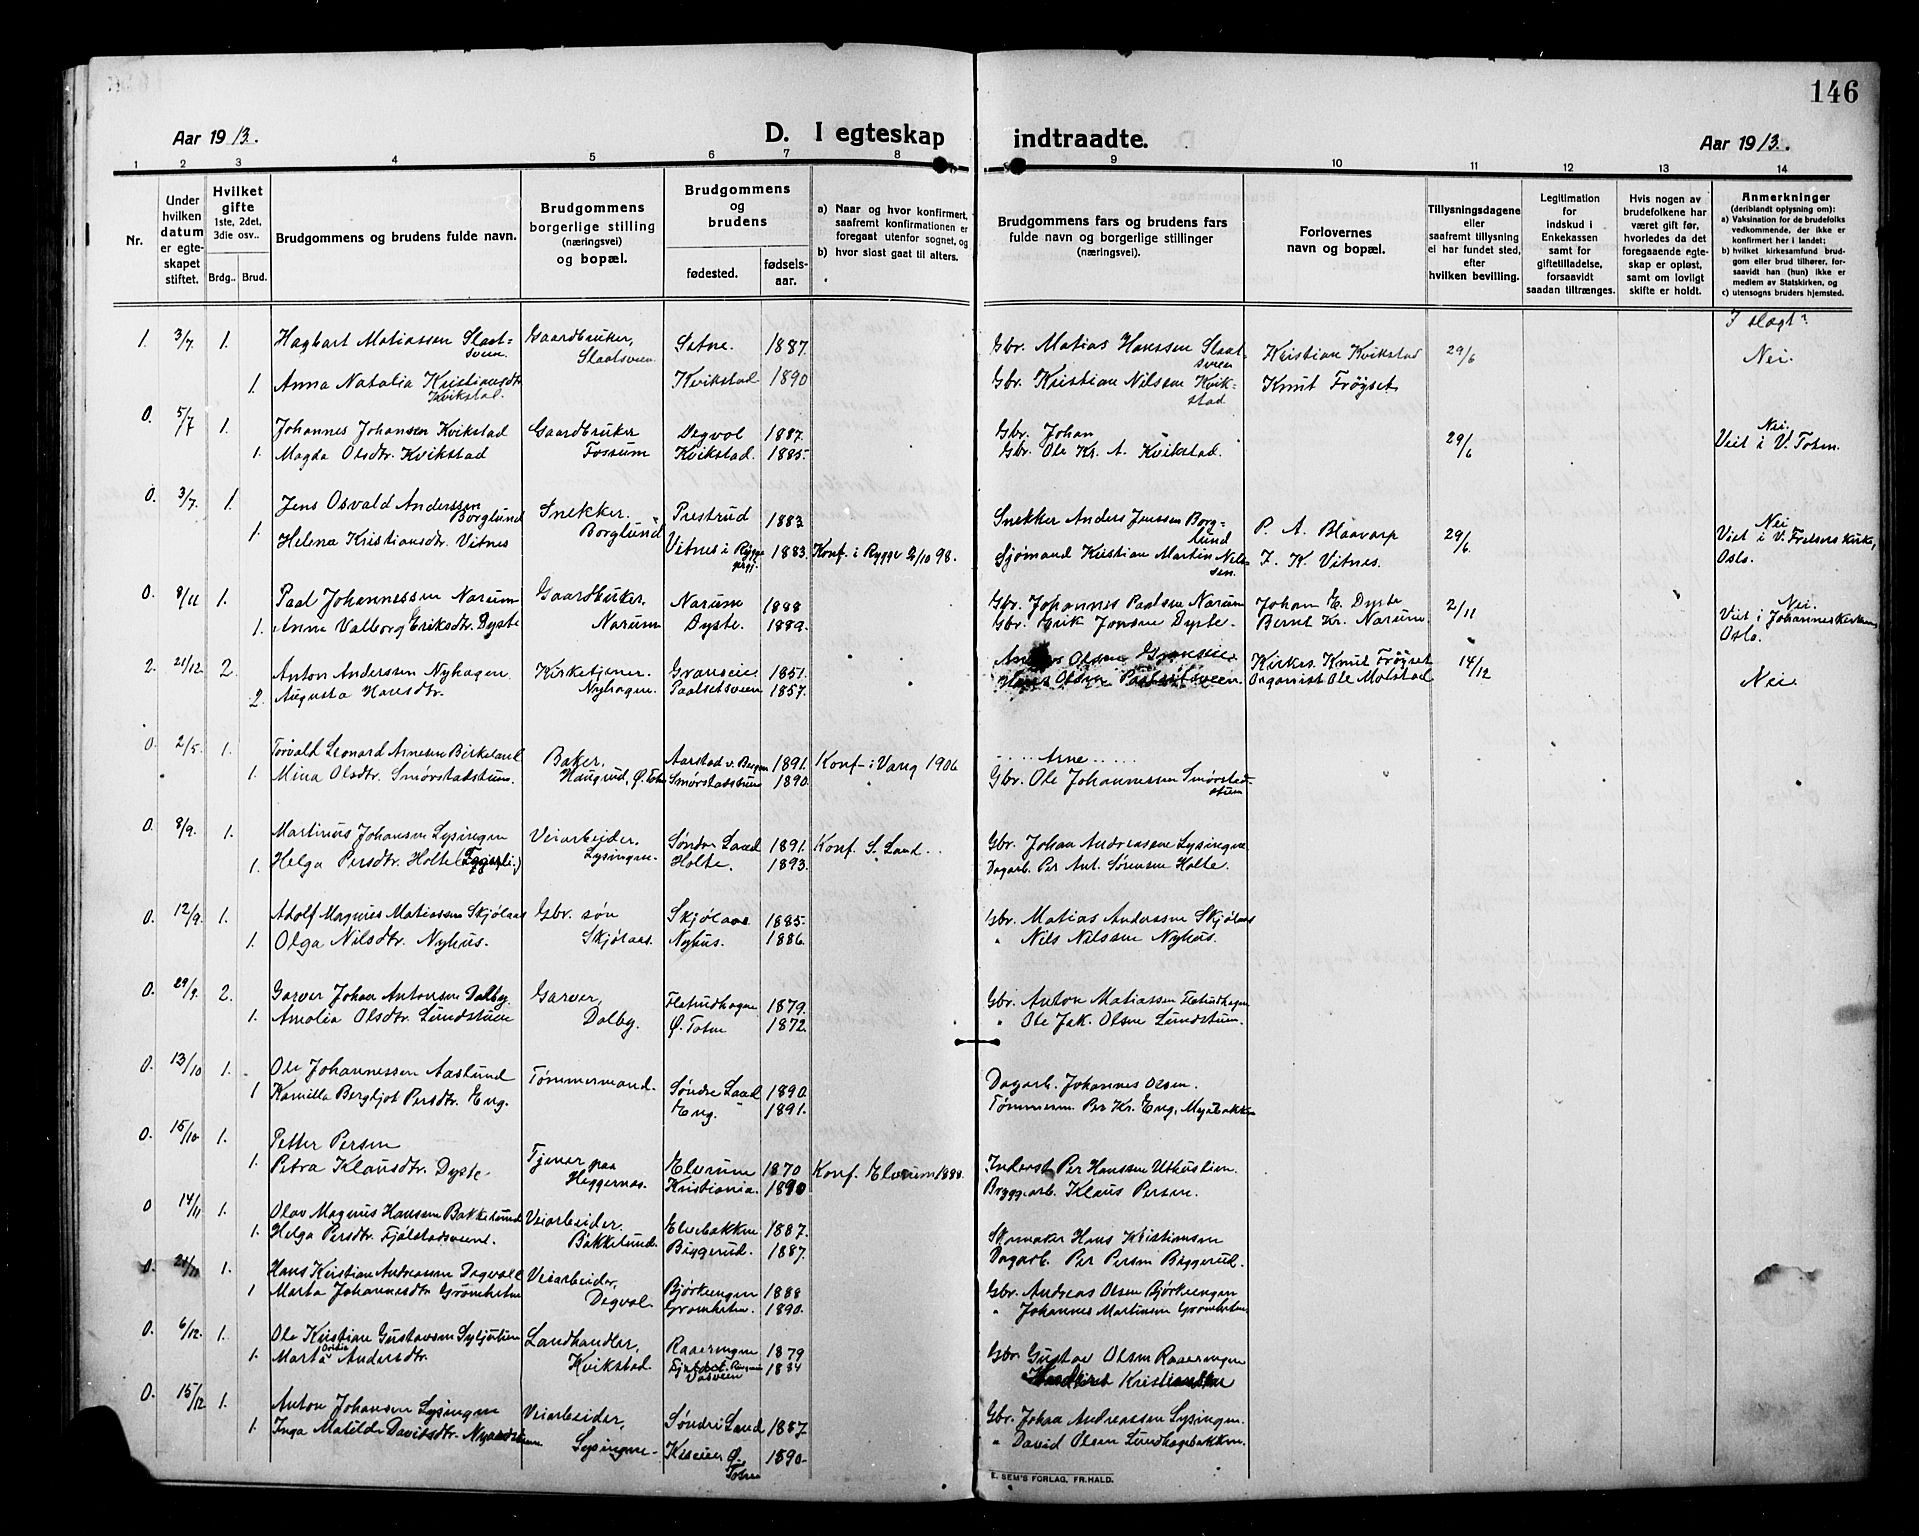 146
Aar 1913.
D. I egteskap indtraadte.
Aar 1913.
1 2 3 4 5 6 7 8 9 10 11 12 13 14
Nr.
Under hvilken datum er egteskapet stiftet.
Hvilket gifte 1ste, 2det, 3die osv..
Brdg.. Brud.
Brudgommens og brudens fulde navn.
Brudgommens borgerlige stilling (næringsvei) og bopæl.
Brudgommens og brudens
fødested. fødsels-aar.
a) Naar og hvor konfirmert, saafremt konfirmationen er foregaat utenfor sognet, og
b) hvor sidst gaat til alters.
Brudgommens fars og brudens fars fulde navn og borgerlige stillinger (næringsvei).
Forlovernes navn og bopæl.
Tillysningsdagene eller saafremt tillysning ei har fundet sted, efter hvilken bevilling.
Legitimation for Indskud i Enkekassen samt for giftetilladelse, forsaavidt saadan tiltrænges.
Hvis nogen av brudefolkene har været gift før, hvorledes da det foregaaende egteskap er opløst, samt om lovligt skifte er holdt.
Anmerkninger (deriblandt oplysning om):
a) Vaksination for de brudefolks vedkommende, der ikke er konfirmert her i landet;
b) hvilket kirkesamfund brudgom eller brud tilhører, forsaavidt han (hun) ikke er medlem av Statskirken, og
c) utensogns bruders hjemsted.
I slegt?
1. 3/7. 1. Hagbart Matiassen Slaatsveen. Gaardbruker, Slaatsveen. Sætne. 1887. Gbr. Matias Hanssen Slaatsveen Kristian Kvikstad 29/6 Nei.
1. Anna Natalia Kristiansdtr Kvikstad. Kvikstad 1890 Gbr. Kristian Nilssen Kvikstad Knut Frøyset
0. 5/7 1. Johannes Johansen Kvikstad Gaardbruker Fossum Degvol 1887. Gbr. Johan " 29/6 Nei. Viet i V. Toten.
1. Magda Olsdtr. Kvikstad Kvikstad. 1885. Gbr. Ole Kr. A. Kvikstad.
0. 3/7. 1. Jens Osvald Anderssen Borglund Snekker. Borglund Prestrud 1883. Snekker Anders Jenssen Borglund P. A. Blaavarp 29/6. Nei Viet i V. Frelsers kirke, Oslo.
1. Helena Kristiansdtr. Vitnes Vitnes i Rygge prgj. 1883. Konf. i Rygge 2/10 98. Sjømand Kristian Martin Nilssen. I. K. Vitnes.
0. 8/11 1. Paal Johannessen Narum Gaardbruker. Narum Narum 1888 Gbr. Johannes Paalsen Narum Johan E. Dyste 2/11 Nei. Viet i Johanneskirken, Oslo.
1. Anne Valborg Eriksdtr. Dyste Dyste. 1889. Gbr. Erik Jonsen Dyste. Bernt Kr. Narum.
2. 21/12. 2. Anton Anderssen Nyhagen Kirketjener. Nyhagen. Granseie 1851. Olsen Granseie Kirkes. Knut Frøyset 14/12 Nei
2. Augusta Hansdtr. Paalsetsveen 1857. Hans Olsen Paalsetsveen. Organist Ole Molstad
0. 2/5. 1. Torvald Leonard Arnesen Birkeland Baker. Haugrud, Ø. Toten Aarstad v. Bergen 1891. Konf. i Vang 1906 ..... Arne .....
1. Mina Olsdtr. Smørstadstuen. Smørstadstuen 1890. Gbr. Ole Johannessen Smørstadstuen
0. 8/9. 1. Martinus Johansen Lysingen Veiarbeider. Lysingen. Søndre Land 1891. Konf. S. Land. Gbr. Johan Andreassen Lysingen
1. Helga Persdtr. Holte Holte. 1893. Dagarb. Per Ant. Sørensen Holte.
0. 12/9. 1. Adolf Magnus Matiassen Skjølaas Gbr. søn Skjølaas. Skjølaas 1885. Gbr. Matias Anderssen Skjølaas
1. Olga Nilsdtr. Nyhus. Nyhus. 1886. " Nils Nilssen Nyhus.
0. 29/9. 2. Garver Johan Antonsen Dalby. Garver, Dalby. Flatrudhagen 1879. Gbr. Anton Matiassen Flatrudhagen
1. Amalia Olsdtr. Lundstuen Ø. Toten 1872. " Ole Jak. Olsen Lundstuen.
0. 13/10 1. Ole Johannessen Aaslund Tømmermand. Søndre Land 1890. Dagarb. Johannes Olsen.
1 Kamilla Bergljot Persdtr. Eng. Eng. 1891. Tømmerm. Per Kr. Eng,
0. 15/10 1. Petter Persen Tjener paa Heggernæs. Elverum 1870 Konf. Elverum 1888. Inderst Per Hanssen
1. Petra Klausdtr. Dyste Kristiania. 1890 Bryggearb. Klaus Persen.
0 14/11 1. Olav Magnus Hansen Bakkelund Veiarbeider. Bakkelund. Elvebakken 1887. Skomaker Hans Kristiansen
1. Helga Persdtr. Fjølstadsveen. Biggerud. 1887. Dagarb. Per Persen Biggerud.
0. 21/11 1. Hans Kristian Andreassen Degvoll Veiarbeider, Degvol. Bjørkeengen 1888 Gbr. Andreas Olsen Bjørkeengen
1 Marta Johannesdtr Gromheten Gromheten. 1890. " Johannes Martinsen Gromheten
0. 6/12. 1. Ole Kristian Gustavsen Landhandler, Kvikstad. Raaerengen 1879 Gbr. Gustav Olsen Raaerengen
1. Marta Andersdtr. 1884
0. 15/12 1. Anton Johansen Lysingen Veiarbeider, Lysingen. Søndre Land 1887. Gbr. Johan Andreassen Lysingen.
1. Inga Matilde Davidsdtr. Ø. Toten 1890. " David Olsen Lundhagebakken.
E. SEM'S FORLAG, FR.HALD.